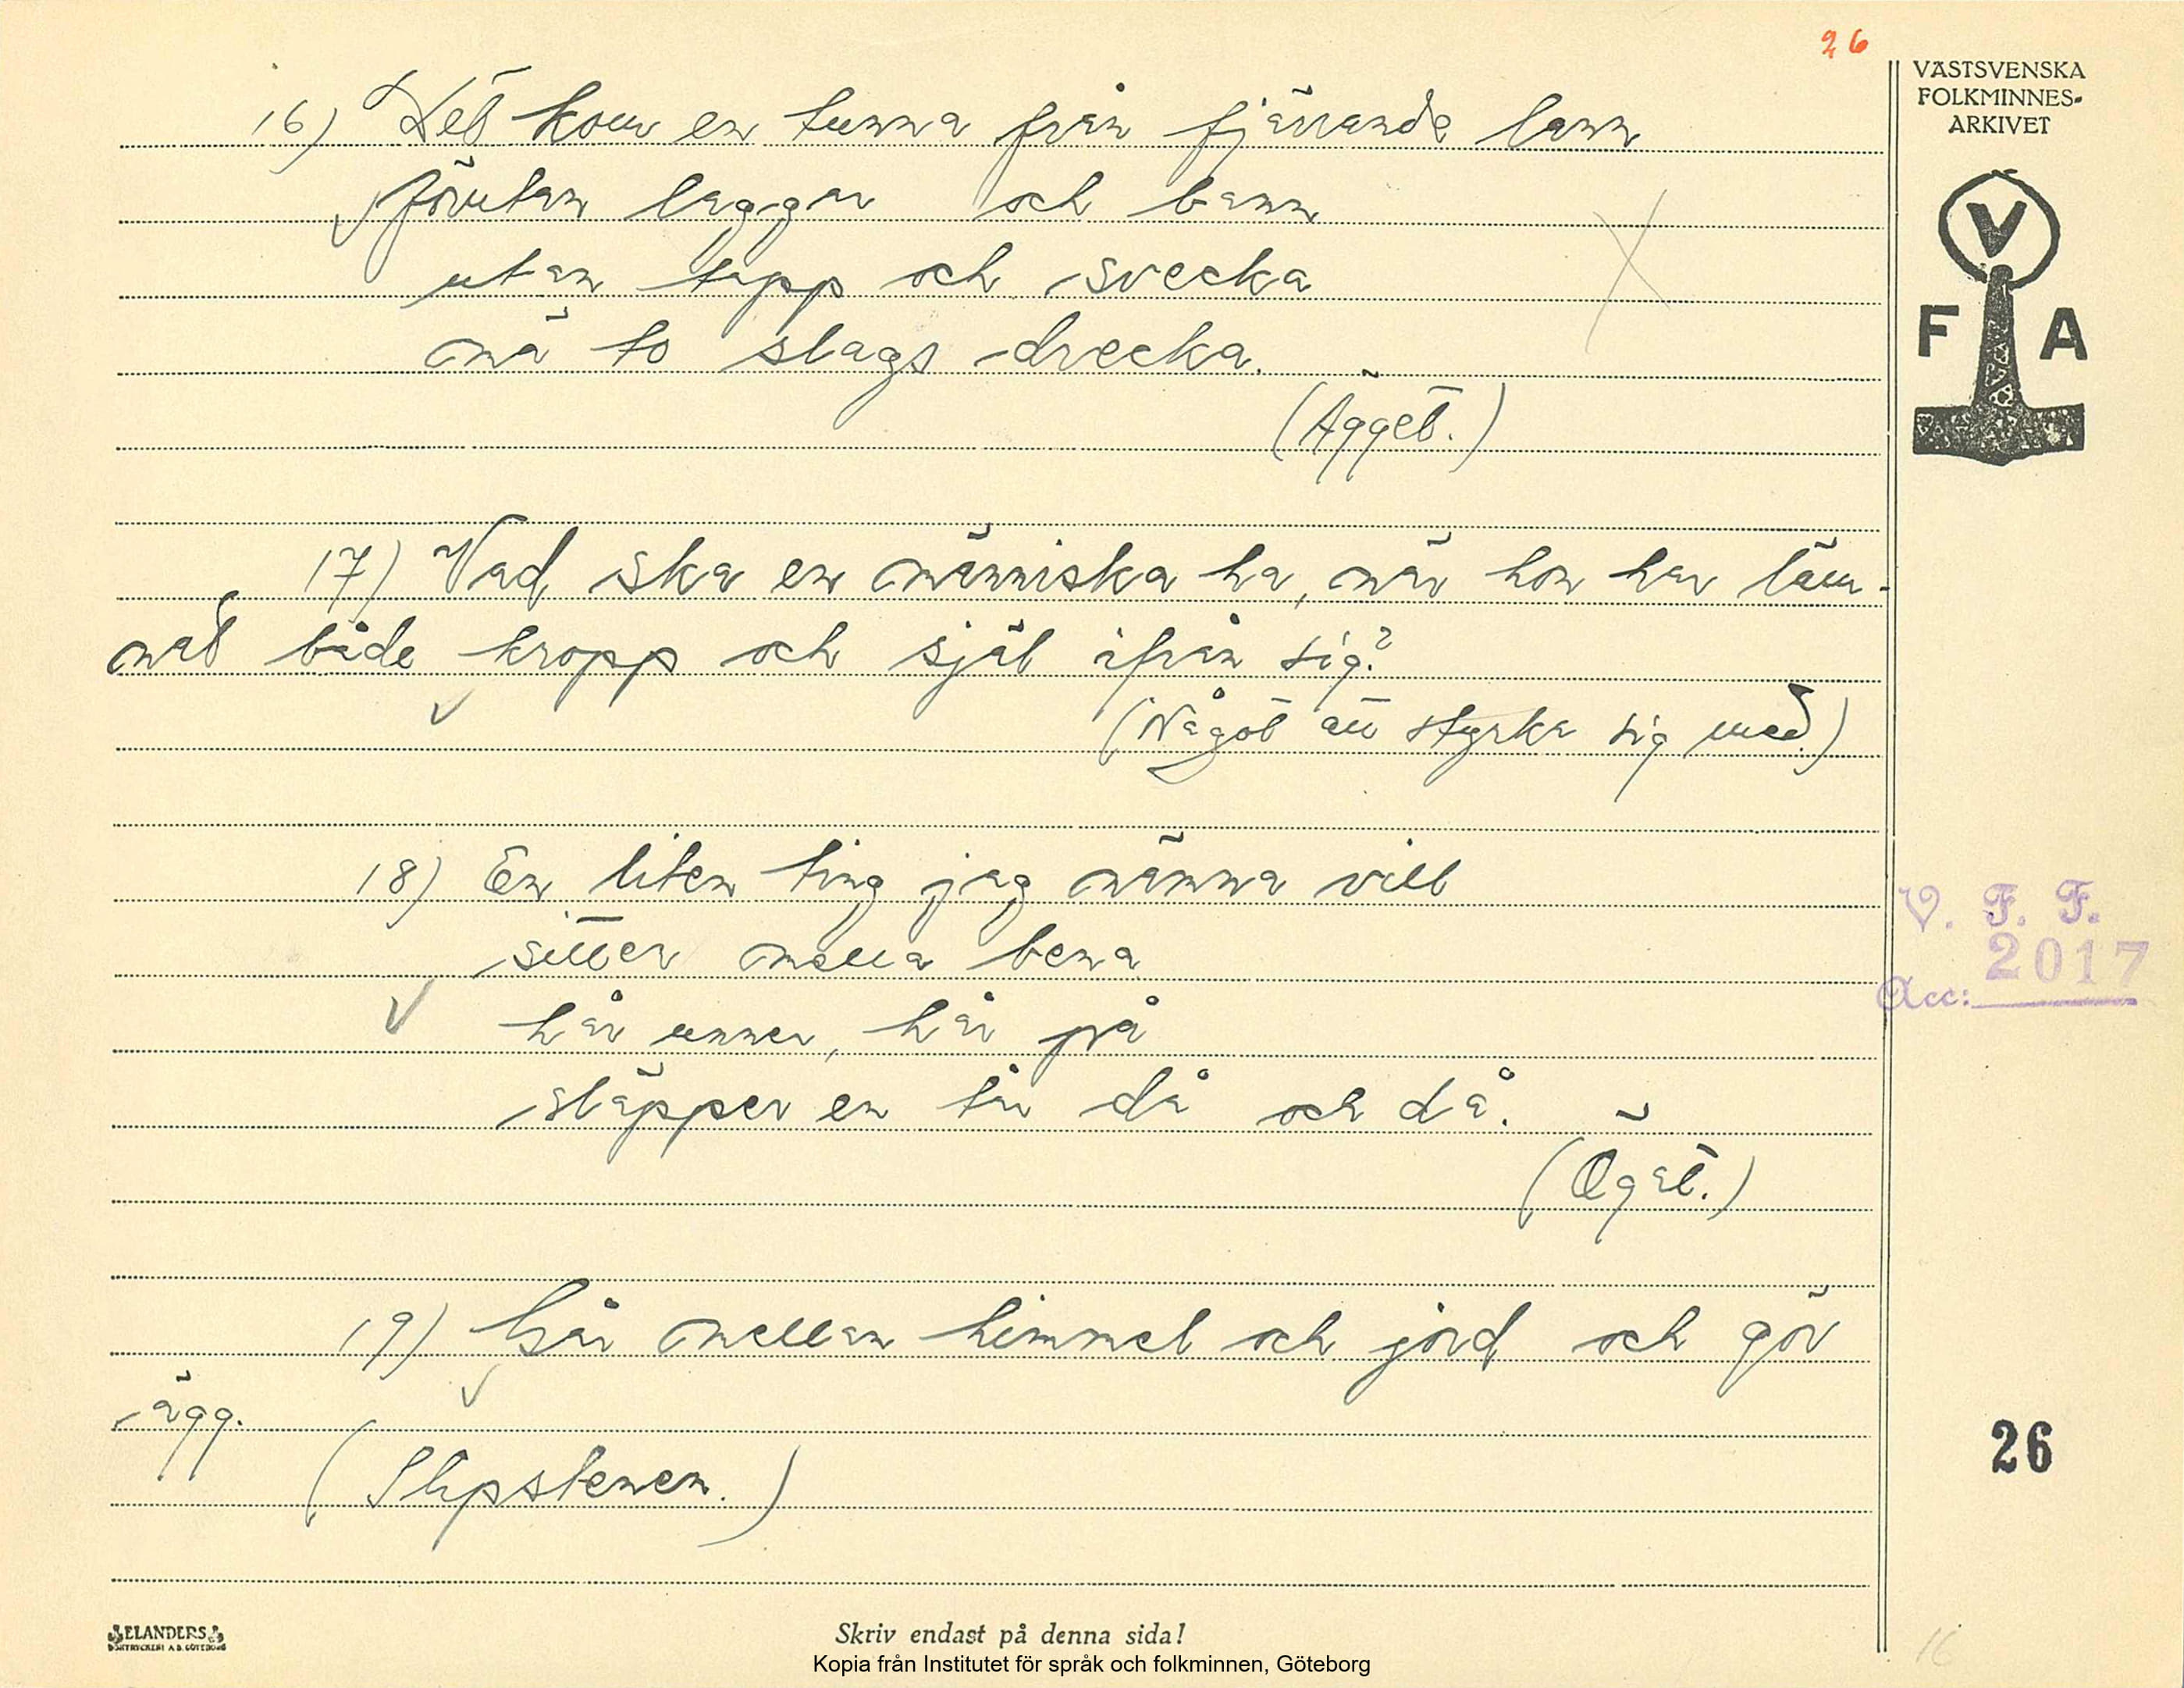 26
VÄSTSVENSKA
FOLKMINNES-
ARKIVET
V
F A
16) Det kom en tunna från fjärrande lann
förutan laggar och bann
utan tapp och svecka
mä to slags drecka.
(Ägget.)
17) Vad ska en människa ha, när hon har läm-
nat både kropp och själ ifrån sig?
(Något att styrka sig med)
18) En liten ting jag nämna vill
sitter mella bena
hår unner, hår på
släpper en tår då och då.
(Ögat.)
V. F. F.
Acc: 2017
19) Går mellan himmel och jord och gör
ägg.
(Slipstenen.)
26
ELANDERS
BOKTRYCKERI A.B. GÖTEBORG
Skriv endast på denna sida!
Kopia från Institutet för språk och folkminnen, Göteborg
16